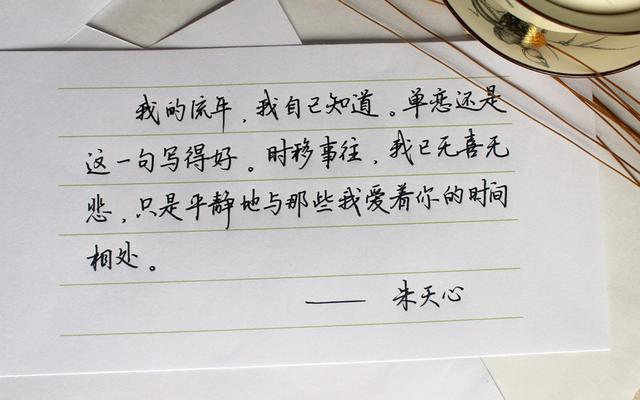 我的流年，我自己知道。单恋还是
这一句写得好。时移事往，我已无喜无
悲，只是平静地与那些我爱着你的时间
相处。
—— 朱天心